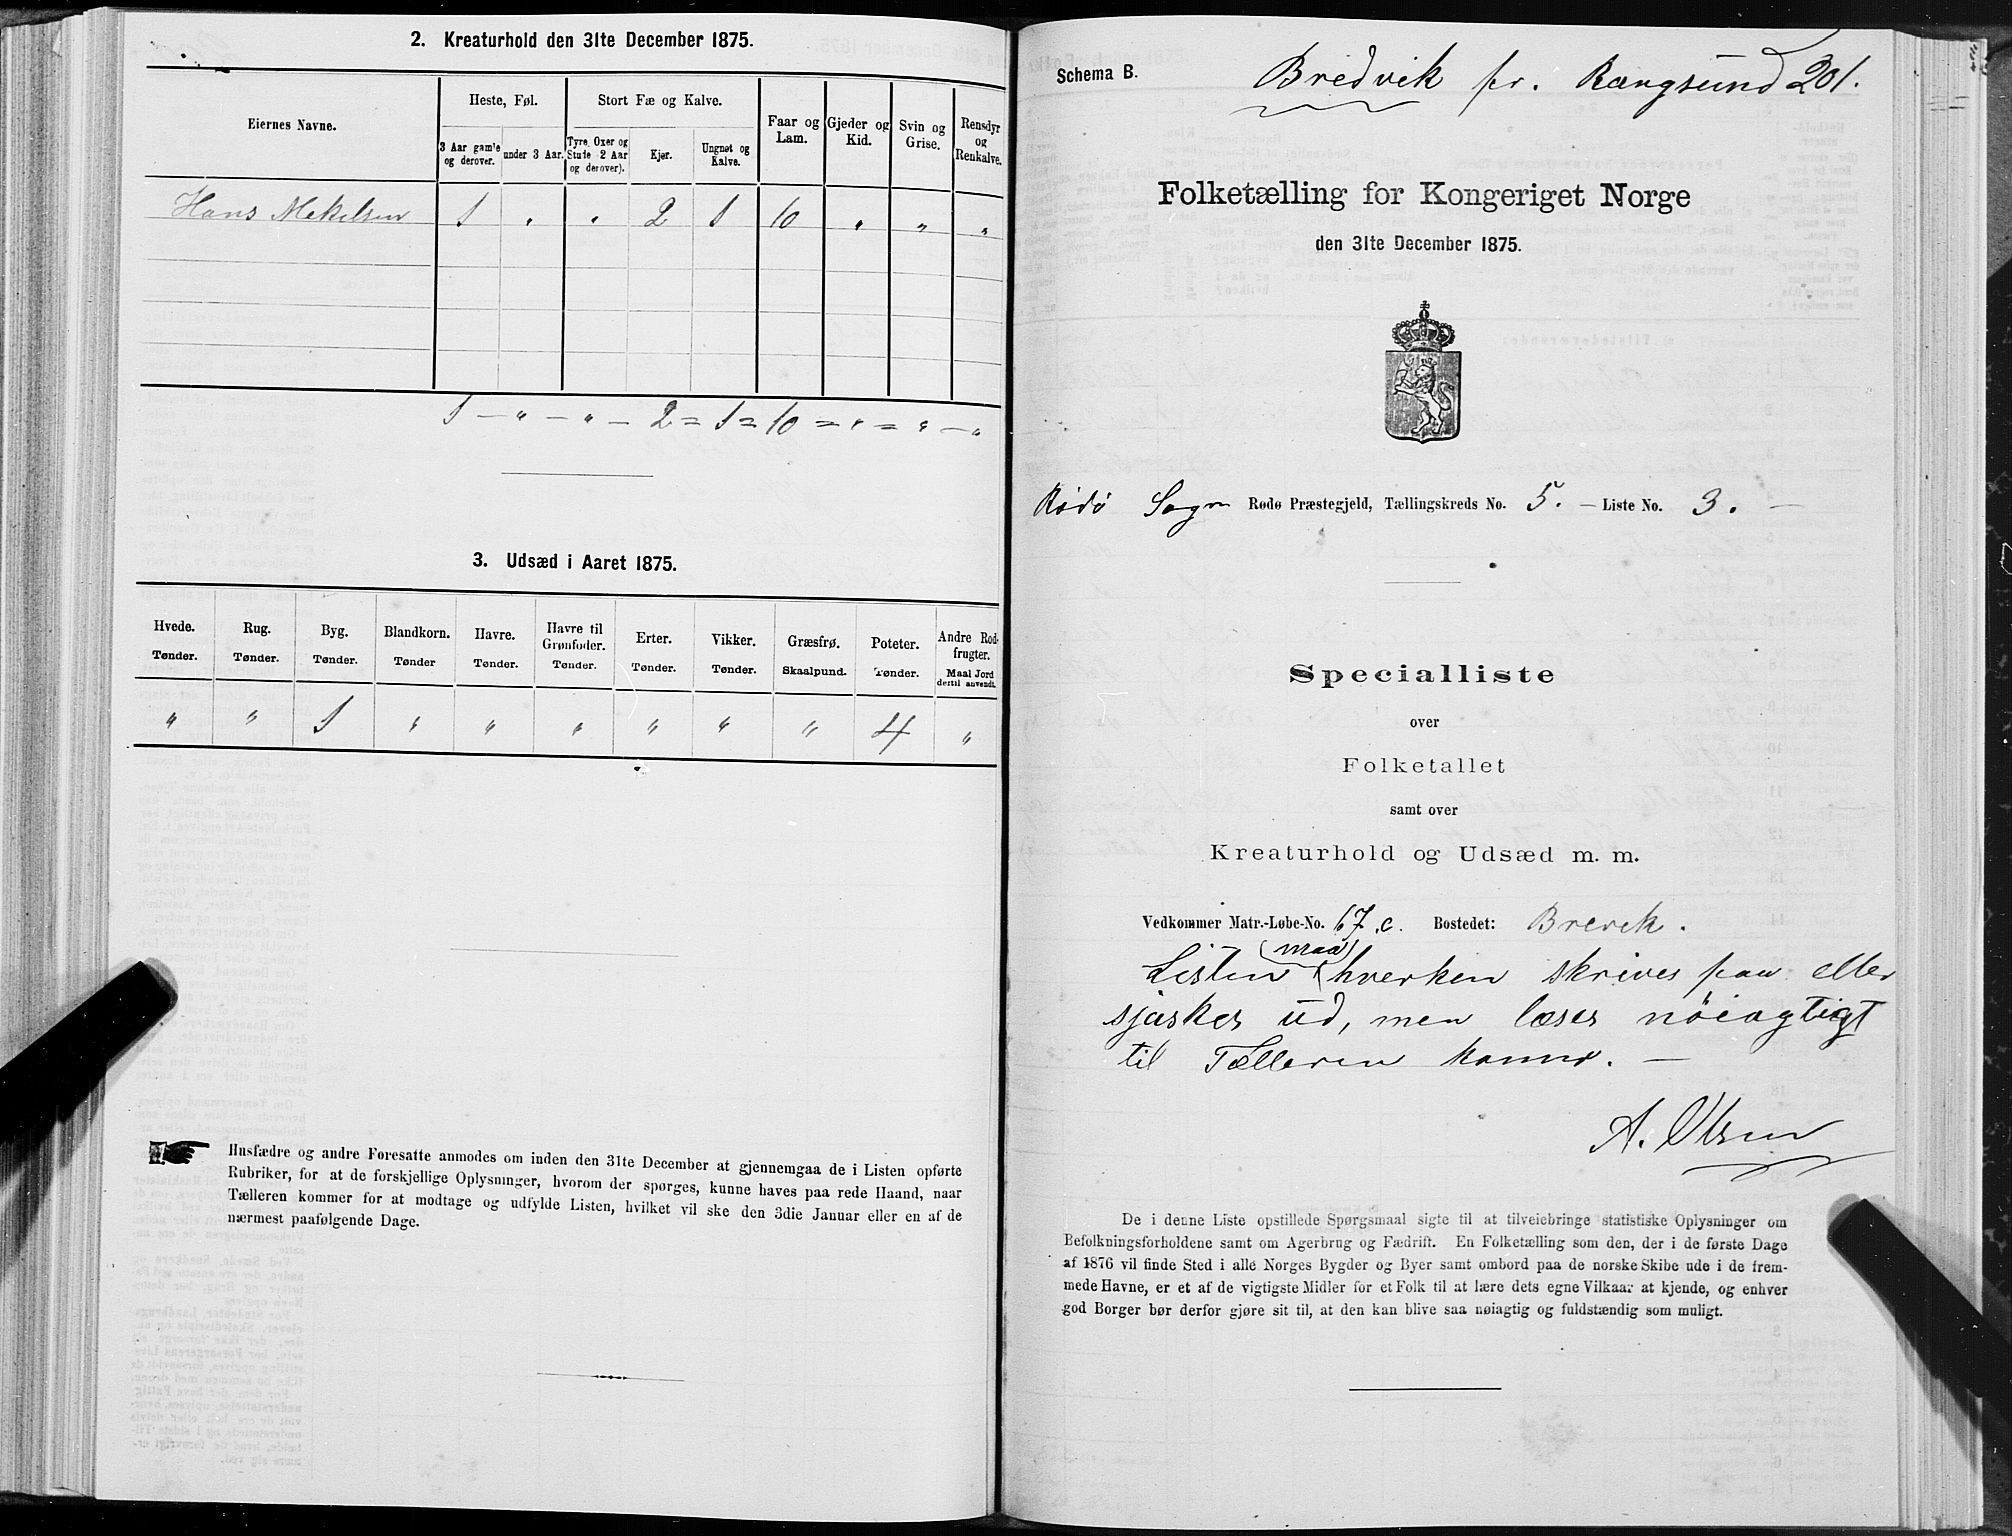 2. Kreaturhold den 31te December 1875.
Eiernes Navne.
Heste, Føl.
Stort Fæ og Kalve.
Faar og Lam.
Gjeder og Kid.
Svin og Grise.
Rensdyr og Renkalve.
3 Aar gamle og derover.
under 3 Aar.
Tyre, Oxer og Stude (2 Aar og derover).
Kjør.
Ungnøt og Kalve.
Hans Mekelsen 1 " " 2 1 10 " " "
1 – " – " – 2 = 1 = 10 = " = " – "
3. Udsæd i Aaret 1875.
Hvede. Rug. Byg. Blandkorn. Havre. Havre til Grønfoder. Erter. Vikker. Græsfrø. Poteter. Andre Rodfrugter.
Tønder. Tønder. Tønder. Tønder Tønder. Tønder. Tønder. Tønder. Skaalpund. Tønder. Maal Jord dertil anvendt.
" " 1 " " " " " " 4 "
Husfædre og andre Foresatte anmodes om inden den 31te December at gjennemgaa de i Listen opførte
Rubriker, for at de forskjellige Oplysninger, hvorom der spørges, kunne haves paa rede Haand, naar
Tælleren kommer for at modtage og udfylde Listen, hvilket vil ske den 3die Januar eller en af de
nærmest paafølgende Dage.
Schema B.
Bredvik pr. Rangsund 201.
Folketælling for Kongeriget Norge
den 31te December 1875.
Rødø Sogn Rødø Præstegjeld, Tællingskreds No. 5. – Liste No. 3. –
Specialliste
over
Folketallet
samt over
Kreaturhold og Udsæd m. m.
Vedkommer Matr.-Løbe-No. 67.c. Bostedet: Brevek.
(maa)
Listen hverken skrives paa eller
sjuskes ud, men læses nöiagtigt
til Tælleren kommer. –
A. Olsen
De i denne Liste opstillede Spørgsmaal sigte til at tilveiebringe statistiske Oplysninger om
Befolkningsforholdene samt om Agerbrug og Fædrift. En Folketælling som den, der i de første Dage
af 1876 vil finde Sted i alle Norges Bygder og Byer samt ombord paa de norske Skibe ude i de frem-
mede Havne, er et af de vigtigste Midler for et Folk til at lære dets egne Vilkaar at kjende, og enhver
god Borger bør derfor gjøre sit til, at den kan blive saa nøiagtig og fuldstændig som muligt.